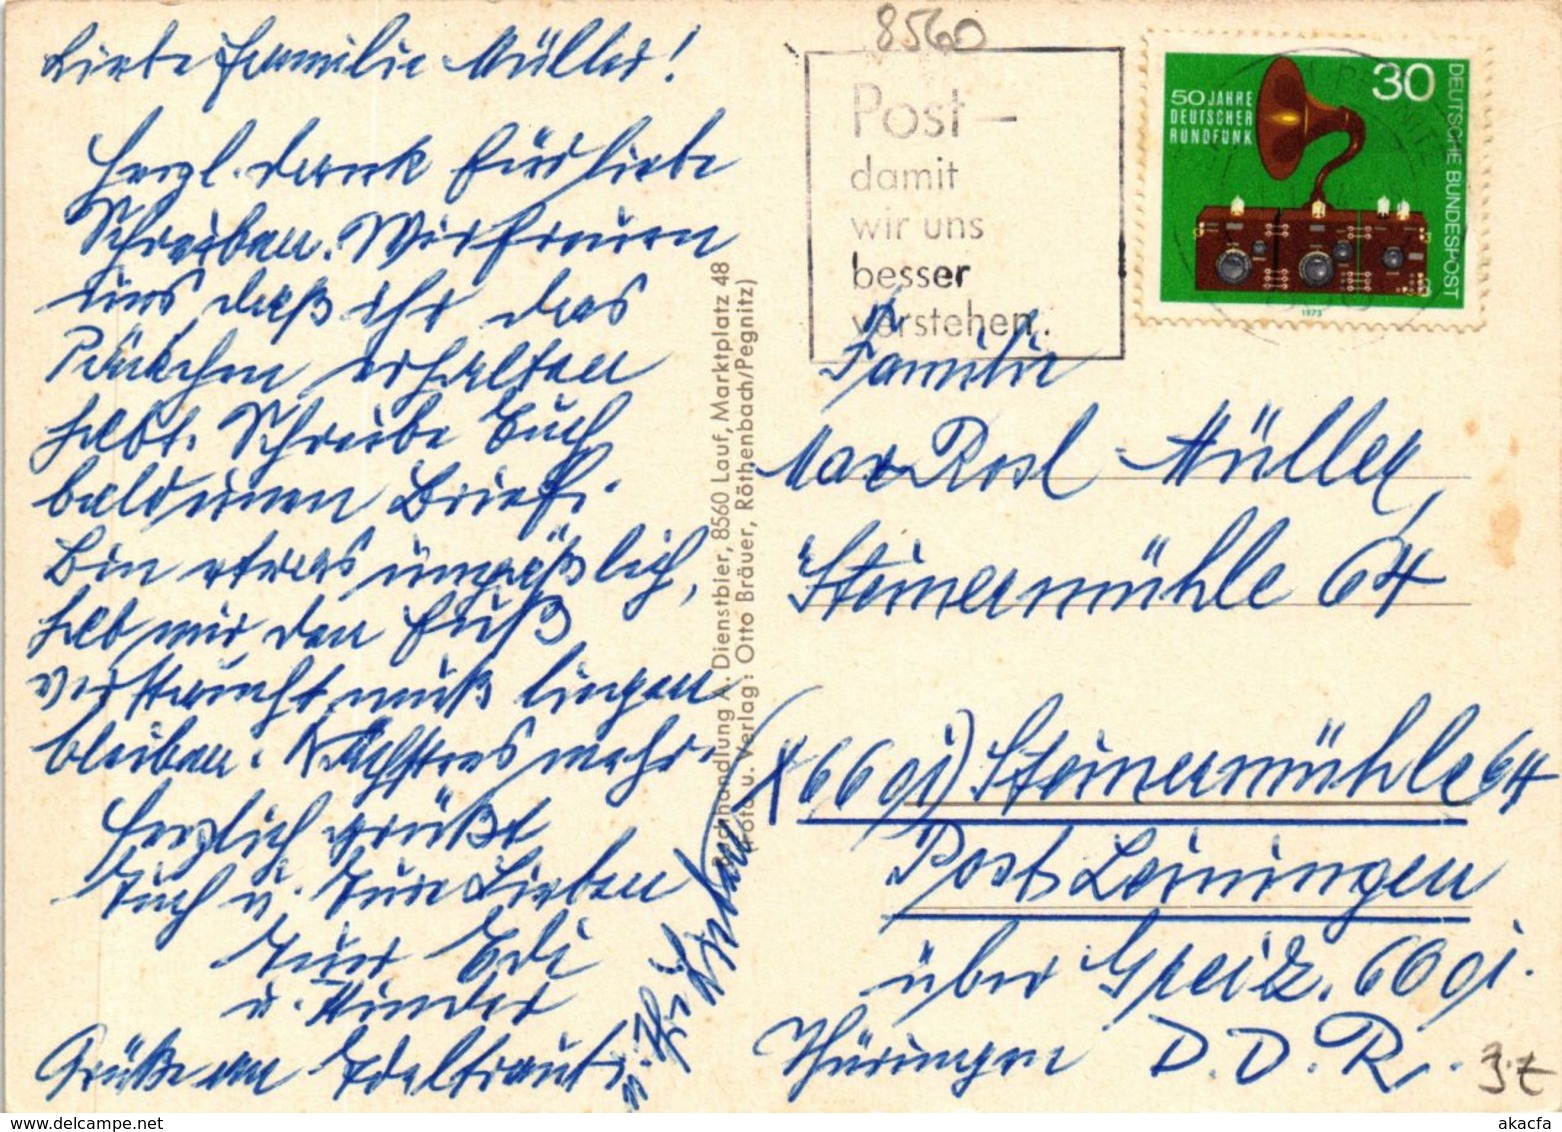 Liebe Familie Müller!
Herzl. Dank für liebe
Schreiben. Wir freuen
uns, daß ihr das
Päckchen erhalten
habt. Schreibe Euch
bald einen Brief.
Bin etwas unpäßlich,
hab mir den Fuß
verstaucht muß liegen
bleiben. Nächstens mehr.
Herzlich grüßt
Euch u. Eure Lieben
Eure Edi
u. Kinder
Grüße an Edeltraut
u. Ihr
8560
Post –
damit
wir uns
besser
verstehen.
50 JAHRE
DEUTSCHER
RUNDFUNK
30
DEUTSCHE BUNDESPOST
1973
Buchhandlung A. Dienstbier, 8560 Lauf, Marktplatz 48
(Foto u. Verlag: Otto Bräuer, Röthenbach/Pegnitz)
Familie
Max Rosl Müller
Steinermühle 64
(X 6601) Steinermühle 64
Post Leiningen
über Greiz. 6601.
Thüringen D. D. R.
akacfa
www.delcampe.net